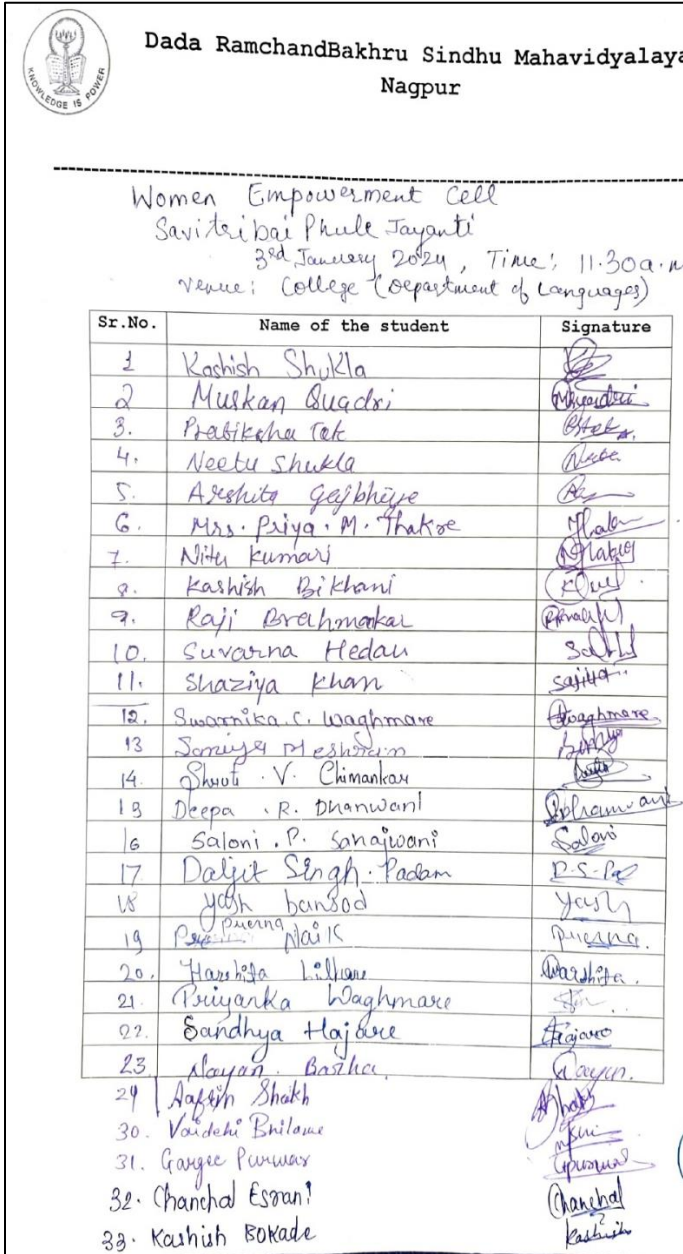 KNOWLEDGE IS POWER
Dada RamchandBakhru Sindhu Mahavidyalaya
Nagpur
Women Empowerment Cell
Savitribai Phule Jayanti
3rd January 2024, Time: 11.30a.m
Venue: College (Department of Languages)
Sr.No. Name of the student Signature
1 Kashish Shukla
2 Muskan Quadri
3. Pratiksha Tak
4. Neetu Shukla
5. Arshita Gajbhiye
6. Mrs. Priya. M. Thakre
7. Nitu Kumari
8. Kashish Bikhani
9. Raji Brahmankar
10. Suvarna Hedau
11. Shaziya Khan
12. Swarnika. C. Waghmare Waghmare
13 Saniya Meshram
14. Shruti . V. Chimankar
15 Deepa . R. Dhanwani
16 Saloni . P. Sanajwani Saloni
17 Daljit Singh. Padam
18 yash bansod Yash
19 Prerna Naik Prerna.
20. Harshita Lilhare Harshita.
21. Priyanka Waghmare
22. Sandhya Hajare Hajare
23 Nayan. Nayan.
29 Shaikh
30. Vaidehi Bhilame
31. Gargee Purwar
32. Chanchal Esrani Chanchal
33. Kashish Bokade Kashish